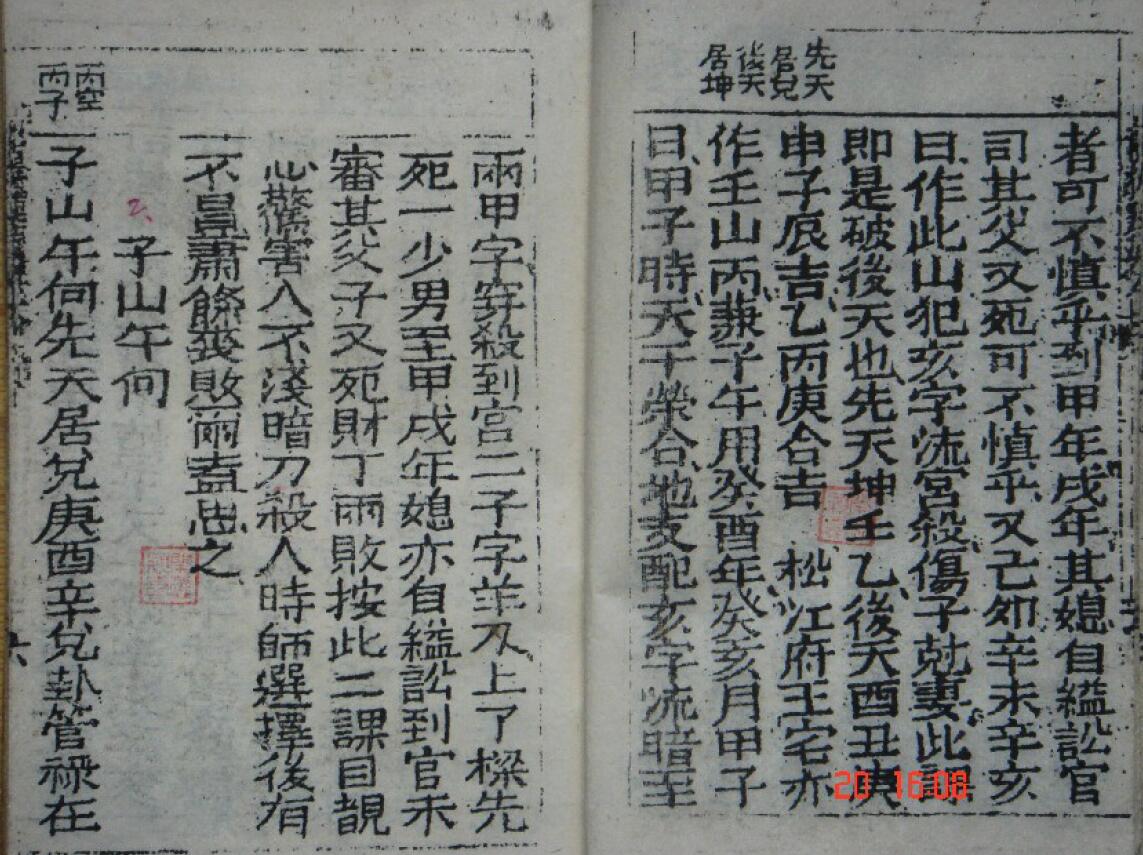 先天
居兌
後天
居坤
者可不慎乎到甲年戌年其媳自縊訟官
司其父又死可不慎乎又己卯辛未辛亥
日作此山犯亥字流宮殺傷子尅妻此課
即是破後天也先天坤壬乙後天酉丑庚
申子辰吉乙丙庚合吉 松江府王宅亦
作壬山丙兼子午用癸酉年癸亥月甲子
日甲子時天干榮合地支配亥字流暗至
兩甲字穿殺到宮二子字羊刃上了樑先
死一少男至甲戌年媳亦自縊訟到官未
審其父子又死財丁兩敗按此二課目覩
心驚害人不淺暗刀殺人時師選擇後有
不
蕭條敗
思之
子山午向
子山午向先天居兌庚酉辛兌卦管祿在
丙空
丙子
20 16:08